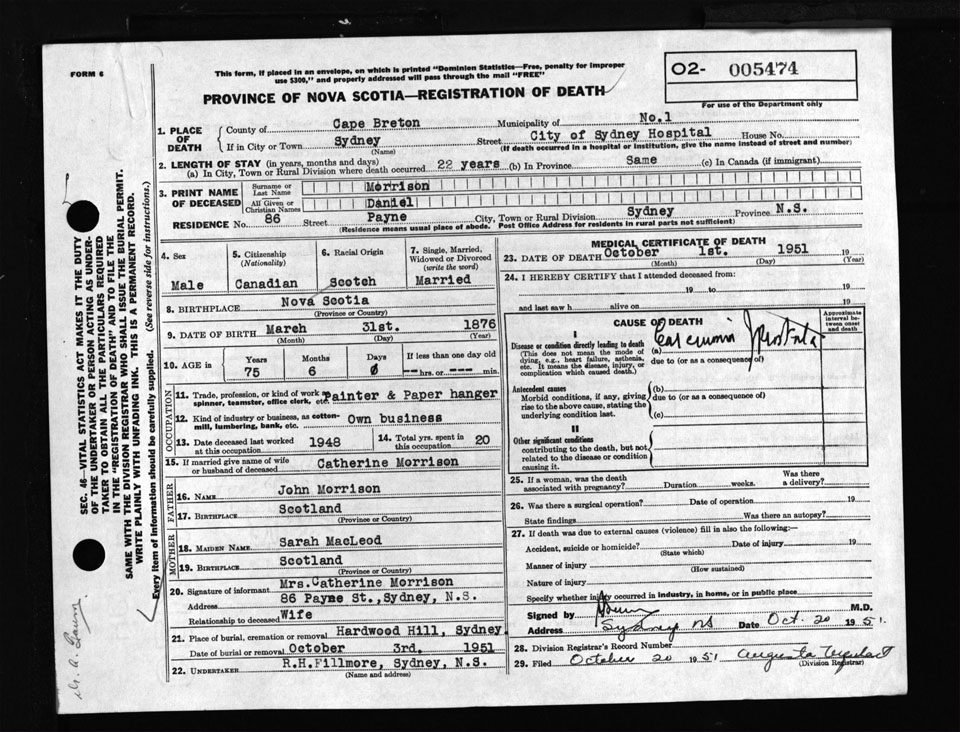 FORM 6
This form, if placed in an envelope, on which is printed "Dominion Statistics—Free, penalty for improper
use $300," and properly addressed will pass through the mail "FREE"
02- 005474
For use of the Department only
PROVINCE OF NOVA SCOTIA—REGISTRATION OF DEATH
1. PLACE OF DEATH
County of Cape Breton Municipality of No.1
If in City or Town Sydney Street City of Sydney Hospital House No.
(Name) (If death occurred in a hospital or institution, give the name instead of street and number)
2. LENGTH OF STAY (in years, months and days)
(a) In City, Town or Rural Division where death occurred 22 years (b) In Province Same (c) In Canada (if immigrant)
3. PRINT NAME OF DECEASED
Surname or Last Name Morrison
All Given or Christian Names Daniel
RESIDENCE No. 86 Street Payne City, Town or Rural Division Sydney Province N.S.
(Residence means usual place of abode. Post Office address for residents in rural parts not sufficient)
4. Sex
Male
5. Citizenship
(Nationality)
Canadian
6. Racial Origin
Scotch
7. Single, Married,
Widowed or Divorced
(write the word)
Married
8. BIRTHPLACE Nova Scotia
(Province or Country)
9. DATE OF BIRTH March 31st. 1876
(Month) (Day) (Year)
10. AGE in
Years Months Days If less than one day old
75 6 0 -- hrs. or -- min.
OCCUPATION
11. Trade, profession, or kind of work as
spinner, teamster, office clerk, etc. Painter & Paper hanger
12. Kind of industry or business, as cotton-
mill, lumbering, bank, etc. Own business
13. Date deceased last worked
at this occupation 1948
14. Total yrs. spent in
this occupation 20
15. If married give name of wife
or husband of deceased Catherine Morrison
FATHER
16. NAME John Morrison
17. BIRTHPLACE Scotland
(Province or Country)
MOTHER
18. MAIDEN NAME Sarah MacLeod
19. BIRTHPLACE Scotland
(Province or Country)
20. Signature of informant Mrs.Catherine Morrison
Address 86 Payne St.,Sydney, N.S.
Relationship to deceased Wife
21. Place of burial, cremation or removal Hardwood Hill, Sydney.
Date of burial or removal October 3rd. 1951
22. UNDERTAKER R.H.Fillmore, Sydney, N.S.
(Name and address)
MEDICAL CERTIFICATE OF DEATH
23. DATE OF DEATH October 1st. 1951 19
(Month) (Day) (Year)
24. I HEREBY CERTIFY that I attended deceased from:
19 to 19
and last saw h alive on 19
CAUSE OF DEATH
Approximate interval between onset and death
I
Disease or condition directly leading to death
(This does not mean the mode of
dying, e.g., heart failure, asthenia,
etc. It means the disease, injury, or
complication which caused death.)
(a) Carcinoma Prostate
due to (or as a consequence of)
Antecedent causes
Morbid conditions, if any, giving
rise to the above cause, stating the
underlying condition last.
(b)
due to (or as a consequence of)
(c)
II
Other significant conditions
contributing to the death, but not
related to the disease or condition
causing it.
25. If a woman, was the death
associated with pregnancy? Duration weeks. Was there
a delivery?
26. Was there a surgical operation? Date of operation 19
State findings Was there an autopsy?
27. If death was due to external causes (violence) fill in also the following:—
Accident, suicide or homicide? Date of injury 19
(State which)
Manner of injury
(How sustained)
Nature of injury
Specify whether injury occurred in industry, in home, or in public place
Signed by M.D.
Address Sydney NS Date Oct. 20 1951.
28. Division Registrar's Record Number
29. Filed October 20 1951 Augusta
(Division Registrar)
SEC. 46—VITAL STATISTICS ACT MAKES IT THE DUTY
OF THE UNDERTAKER OR PERSON ACTING AS UNDER-
TAKER TO OBTAIN ALL THE PARTICULARS REQUIRED
IN THE "REGISTRATION OF DEATH" AND TO FILE THE
SAME WITH THE DIVISION REGISTRAR WHO SHALL ISSUE THE BURIAL PERMIT.
WRITE PLAINLY WITH UNFADING INK. THIS IS A PERMANENT RECORD.
Every item of information should be carefully supplied. (See reverse side for instructions.)